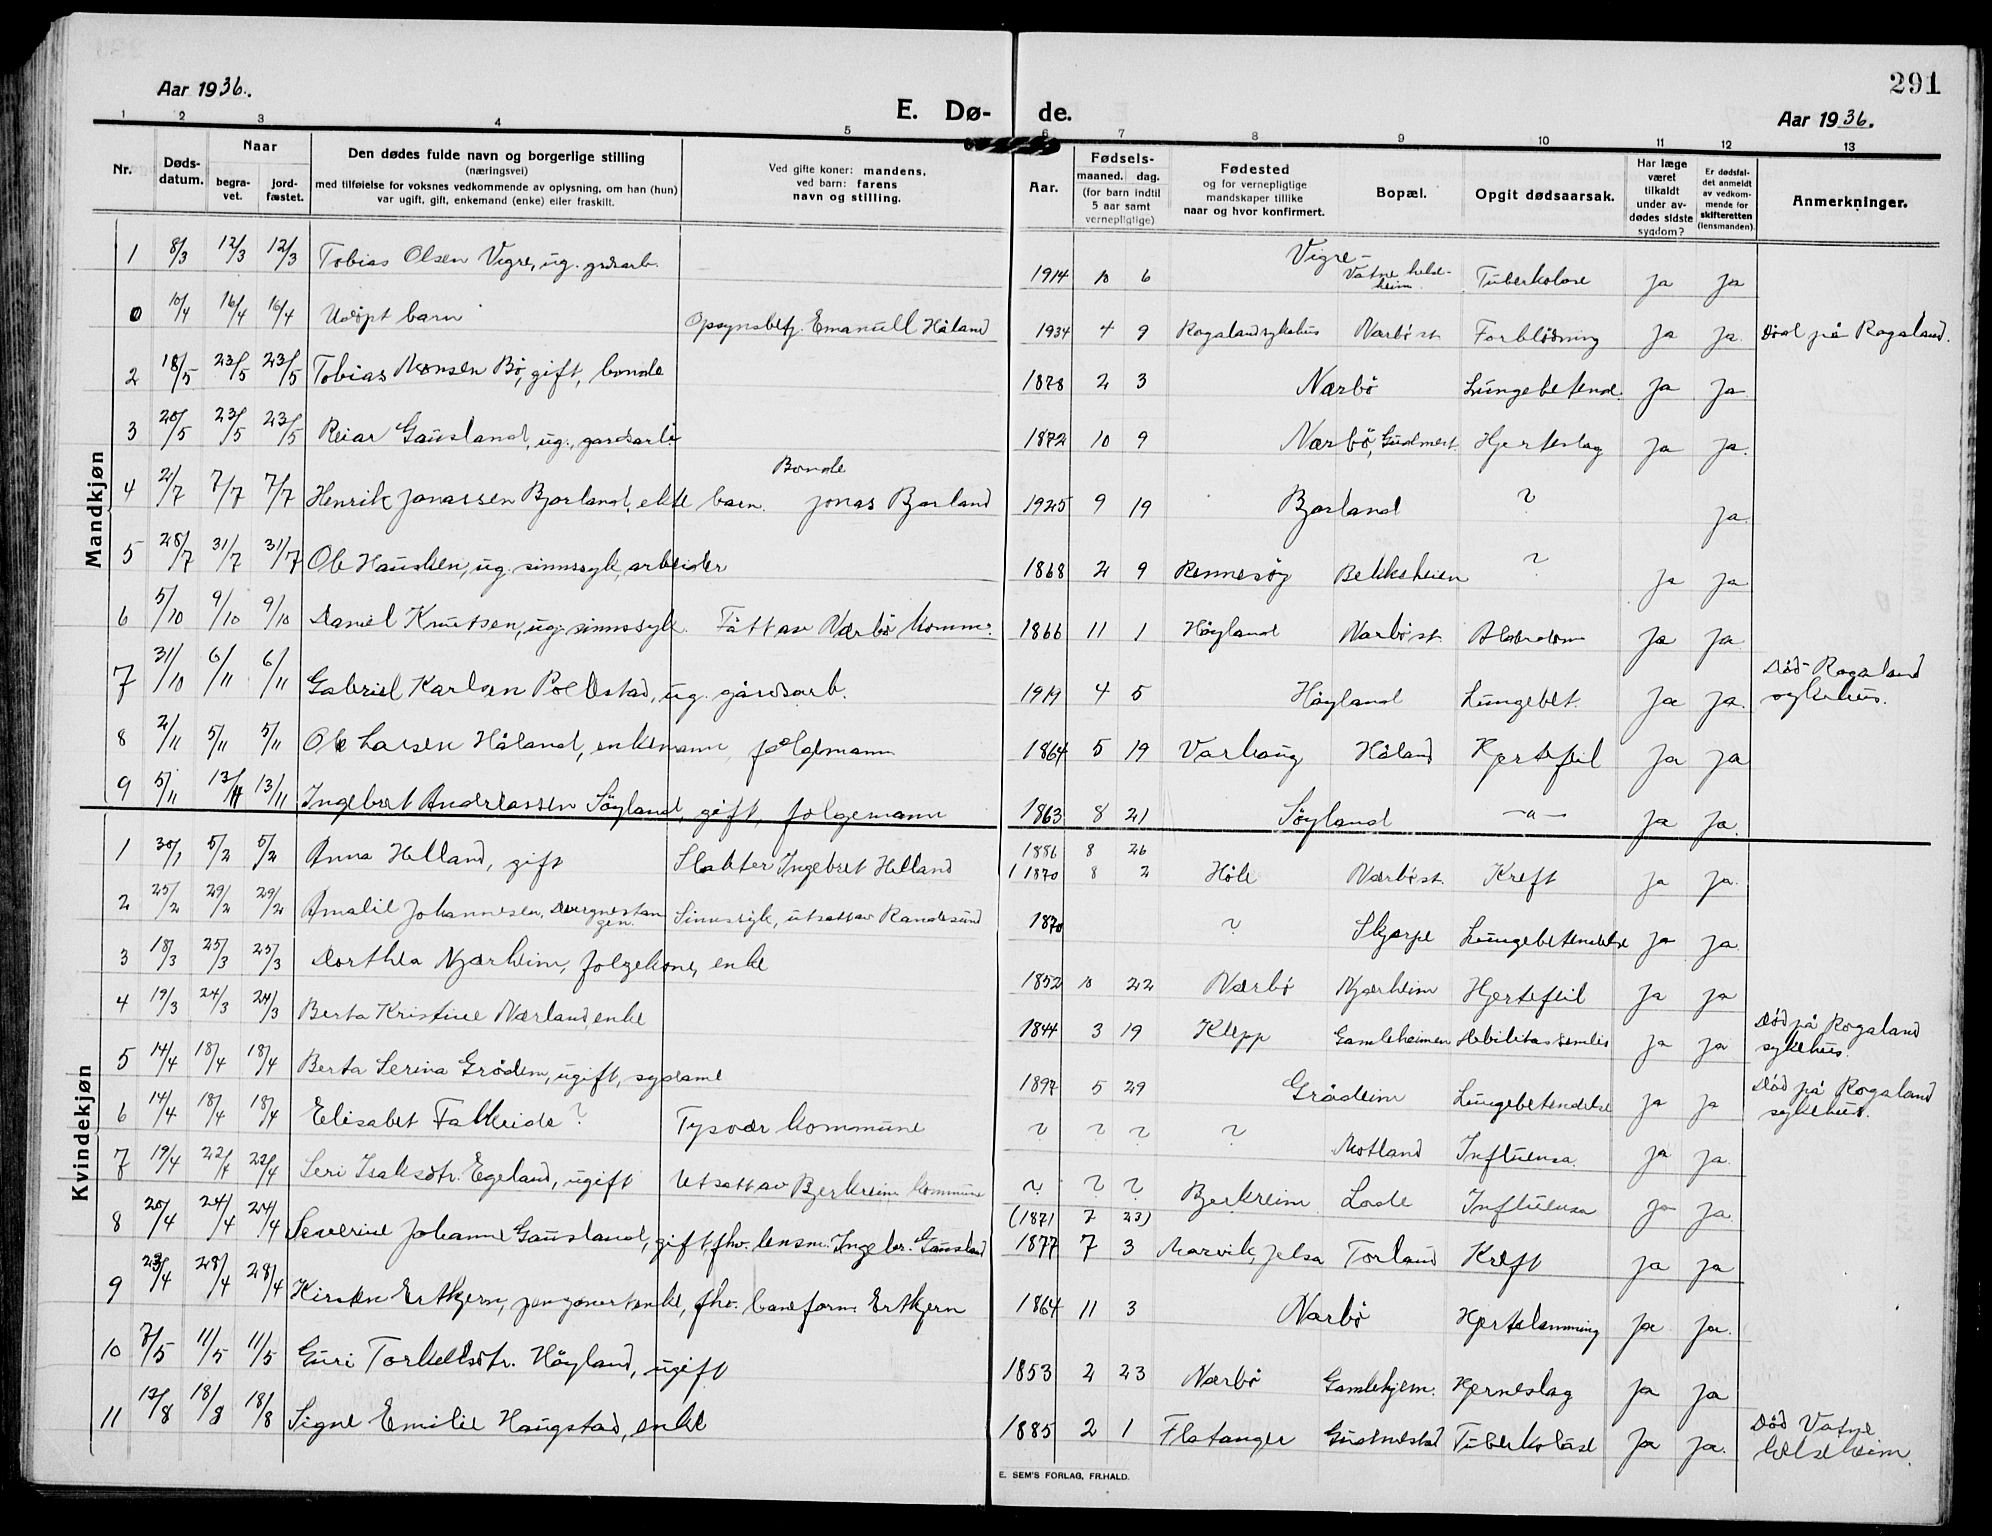 291
Aar 1936.
E. Dø- de.
Aar 1936.
1 2 3 4 5 6 7 8 9 10 11 12 13
Nr.
Døds-
datum.
Naar
begra-
vet.
jord-
fæstet.
Den dødes fulde navn og borgerlige stilling
(næringsvei)
med tilføielse for voksnes vedkommende av oplysning, om han (hun)
var ugift, gift, enkemand (enke) eller fraskilt.
Ved gifte koner: mandens,
ved barn: farens
navn og stilling.
Aar.
Fødsels-
maaned. dag.
(for barn indtil
5 aar samt
vernepligtige)
Fødested
og for vernepligtige
mandskaper tillike
naar og hvor konfirmert.
Bopæl.
Opgit dødsaarsak.
Har læge
været
tilkaldt
under av-
dødes sidste
sygdom?
Er dødsfal-
det anmeldt
av vedkom-
mende for
skifteretten
(lensmanden).
Anmerkninger.
Mandkjøn
1 8/3 12/3 12/3 Tobias Olsen Vigre, ug. grdsarb. 1914 10 6 Vigre - Vatne helse-
heim. Tuberkolose Ja Ja
0 10/4 16/4 16/4 Udøpt barn Opsynsbetj. Emanuell Håland 1934 4 9 Rogalandsykehus Nærbø st. Forblødning Ja Ja. Død på Rogaland.
2 18/5 23/5 23/5 Tobias Monsen Bø, gift, bonde 1878 2 3 Nærbø Lungebetend. Ja Ja.
3 20/5 23/5 23/5 Reiar Gausland, ug., gardsarb 1872 10 9 Nærbø, Hjerteslag Ja Ja.
Bonde
4 2/7 7/7 7/7 Henrik Jonassen Bjorland, ekte barn. Jonas Bjorland 1925 9 19 Bjorland ? Ja.
5 28/7 31/7 31/7 Ole Hausken, ug. sinnssyk, arbeider 1868 2 9 Rennesøy Bekkeheien ? Ja Ja
6 5/10 9/10 9/10 Daniel Knutsen, ug. sinnssyk. Fått av Nærbø komm. 1866 11 1 Høyland Nærbø st. Alderdom Ja Ja
7 31/10 6/11 6/11 Gabriel Karlsen Pollestad, ug. gårdsarb. 1919 4 5 Høyland Lungebet. Ja Ja. Død Rogaland
sykehus.
8 2/11 5/11 5/11 Ole Larsen Håland, enkemann, følgemann 1864 5 19 Varhaug Håland Hjertefeil Ja Ja
9 5/11 13/11 13/11 Ingebret Andreassen Søyland, gift, følgemann 1863 8 21 Søyland -"- Ja Ja.
Kvindekjøn
1886 8 26
1 30/1 5/2 5/2 Anna Helland, gift Slakter Ingebret Helland 1870 8 2 Høle Nærbø st. Kreft Ja Ja.
2 25/2 29/2 29/2 Amalie Johannesen, Sinnssyk, utsatt av Randesund 1870 ? Skjerpe Lungebetendelse Ja Ja.
3 18/3 25/3 25/3 Dorthea Njærheim, følgekone, enke 1852 10 22 Nærbø Njærheim Hjertefeil Ja Ja
4 19/3 24/3 24/3 Berta Kristine Nærland, enke 1844 3 19 Klepp Gamleheimen Debilitas senilis Ja Ja Død på Rogaland
sykehus.
5 14/4 18/4 18/4 Berta Serina Grødem, ugift, sydame 1897 5 29 Grødeim Lungebetendelse Ja Ja Død på Rogaland
sykehus.
6 14/4 18/4 18/4 Elisabet Falkeide? Tysvær kommune ? ? ? ? Motland Influensa. Ja Ja.
7 19/4 22/4 22/4 Seri Isaksdtr. Egeland, ugift Utsatt av Bjerkreim kommune ? ? ? Bjerkreim Lode Influensa Ja Ja.
(1871 7 23)
8 20/4 24/4 24/4 Severine Johanne Gausland, gift, fhv. lensm. Ingebr. Gausland 1877 7 3 Marvik, Jelsa Torland Kreft Ja Ja
9 23/4 28/4 28/4 Kirsten Ertkjern, pensjonert enke, fhv. baneform. Ertkjern 1864 11 3 Nærbø Hjertelamming Ja Ja.
10 7/5 11/5 11/5 Guri Torkellsdtr. Høyland, ugift 1853 2 23 Nærbø Gamlehjem. Hjerneslag Ja Ja
11 13/8 18/8 18/8 Signe Emilie Haugstad, enke 1885 2 1 Flatanger Gudmestad Tuberkolose Ja Ja. Død Vatne
helseheim.
E. SEM'S FORLAG, FR.HALD.